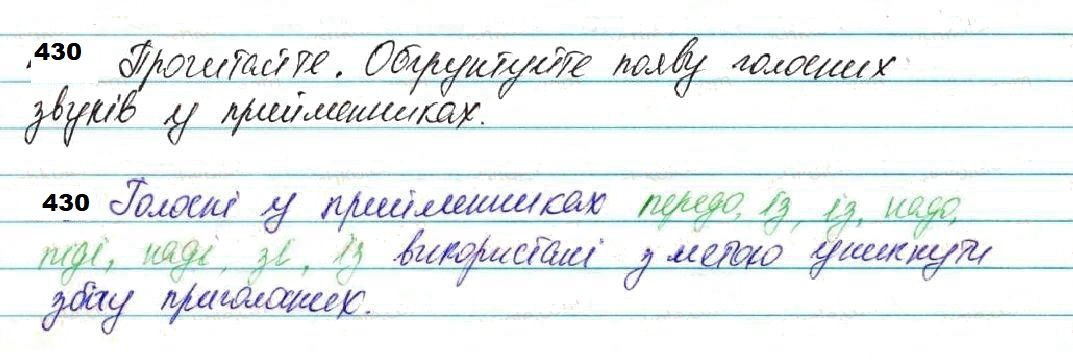 430 Прочитайте. Обґрунтуйте появу голосних
звуків у прийменниках.
430 Голосні у прийменниках передо, із, із, надо,
піді, наді, зі, із використані з метою уникнути
збігу приголосних.